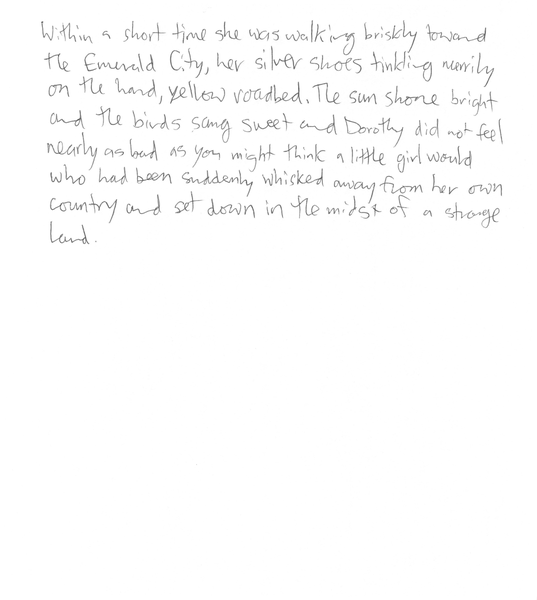 Within a short time she was walking briskly toward
the Emerald City, her silver shoes tinkling merrily
on the hard, yellow roadbed. The sun shone bright
and the birds sang sweet and Dorothy did not feel
nearly as bad as you might think a little girl would
who had been suddenly whisked away from her own
country and set down in the midst of a strange
land.